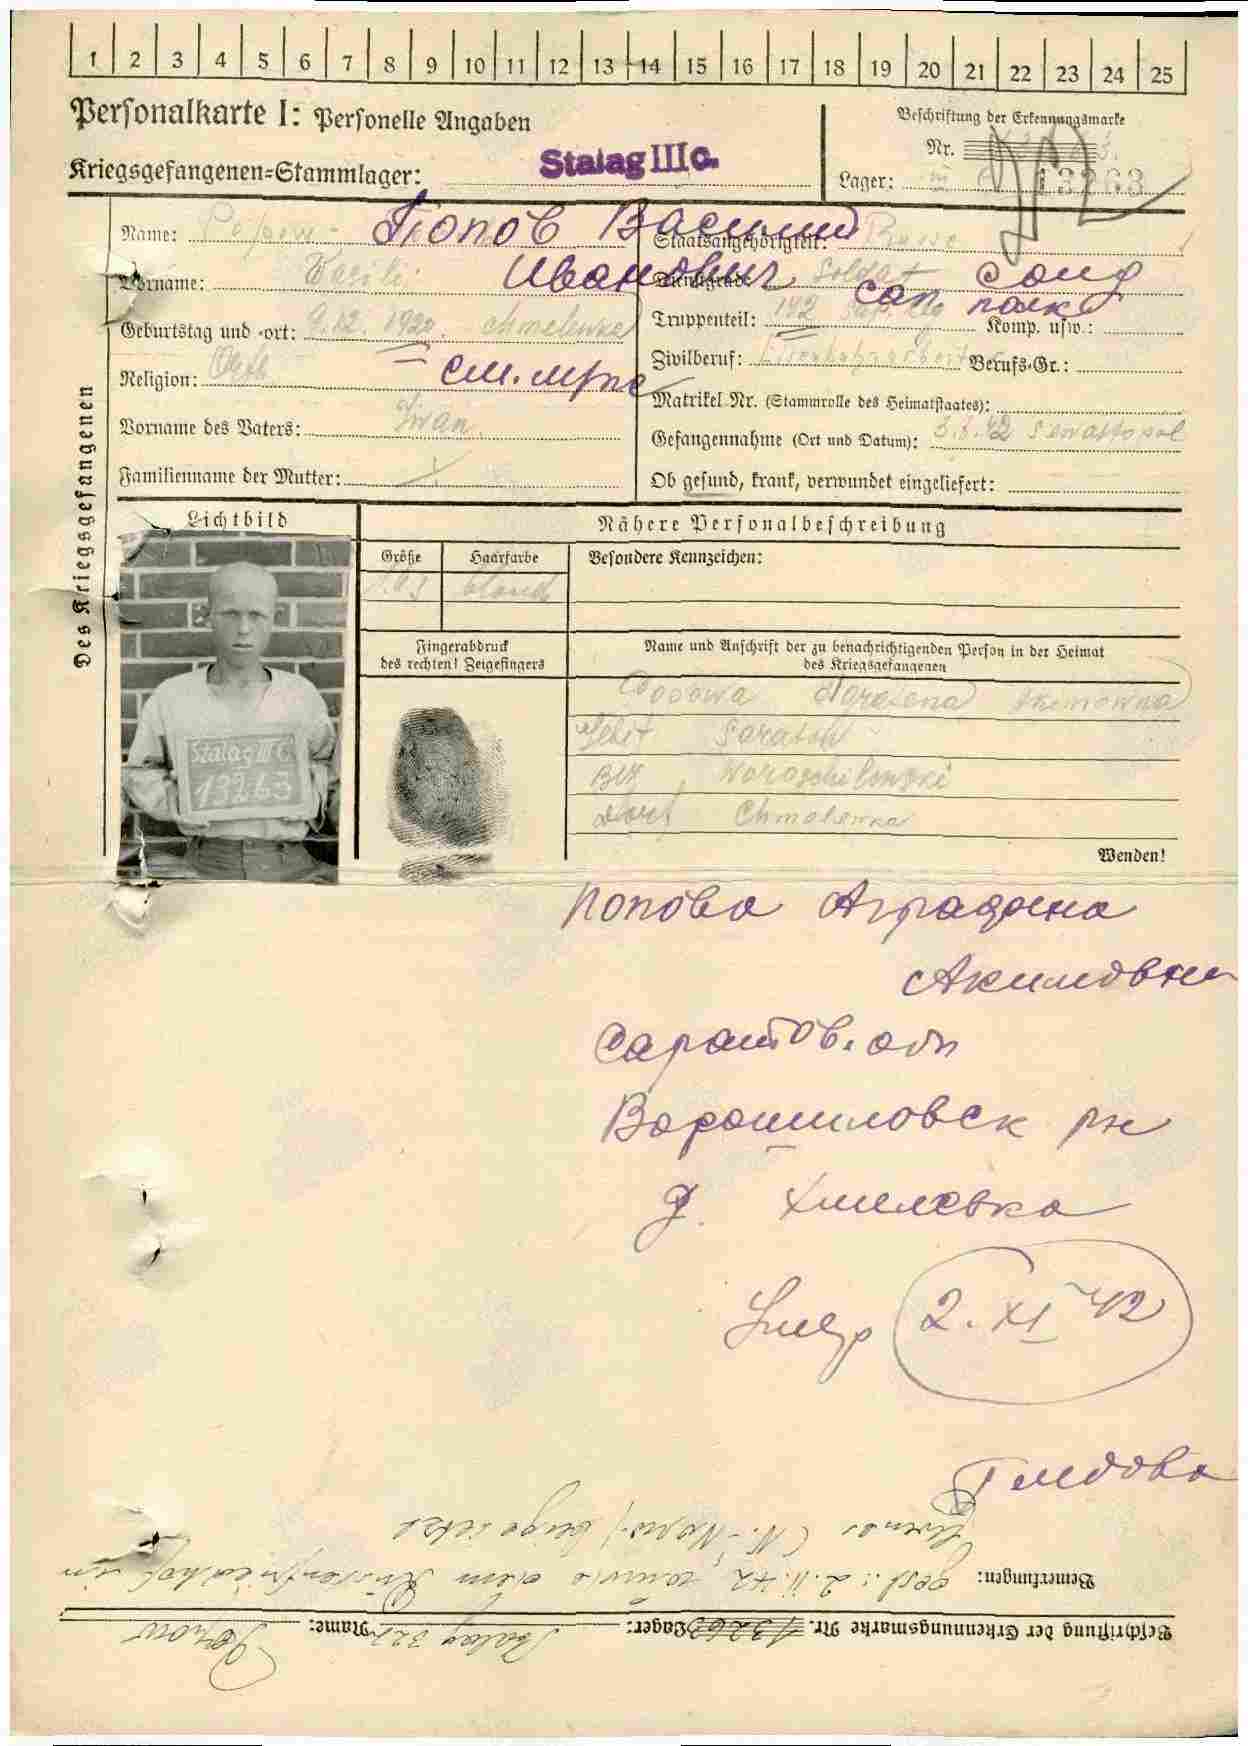 1 2 3 4 5 6 7 8 9 10 11 12 13 14 15 16 17 18 19 20 21 22 23 24 25
Personalkarte I: Personelle Angaben
Beschriftung der Erkennungsmarke
Nr.
Kriegsgefangenen-Stammlager: Stalag III C.
Lager: 13263
Des Kriegsgefangenen
Name: Popow Попов Василий
Staatsangehörigkeit: Russe
Vorname: Wasili Иванович
Dienstgrad: Soldat солд
Geburtstag und -ort: 9.12.1920. Chmelewka
Truppenteil: 142 сап. полк Komp. usw.:
Religion: Orth
Zivilberuf: Eisenbahnarbeiter Berufs-Gr.:
Matrikel Nr. (Stammrolle des Heimatstaates):
Vorname des Vaters: Iwan
Gefangennahme (Ort und Datum): 3.7.42 Sewastopol
Familienname der Mutter:
Ob gesund, krank, verwundet eingeliefert:
Lichtbild
Nähere Personalbeschreibung
Größe Haarfarbe Besondere Kennzeichen:
blond
Fingerabdruck
des rechten! Zeigefingers
Name und Anschrift der zu benachrichtigenden Person in der Heimat
des Kriegsgefangenen
Popowa Akimowna
Gebit Saratow
Woroschilowski
Dorf Chmelewka
Stalag III C
13263
Wenden!
Попова Аграфена
Акимовна
Саратов. обл
Ворошиловск рн
д. Хмелевка
Умер 2.XI 42
Глебова
Bemerkungen: gest.: 2.11.42, auf dem Russenfriedhof in
beigesetzt
Beschriftung der Erkennungsmarke Nr. 13263 Lager: Stalag 327 Name: Popow